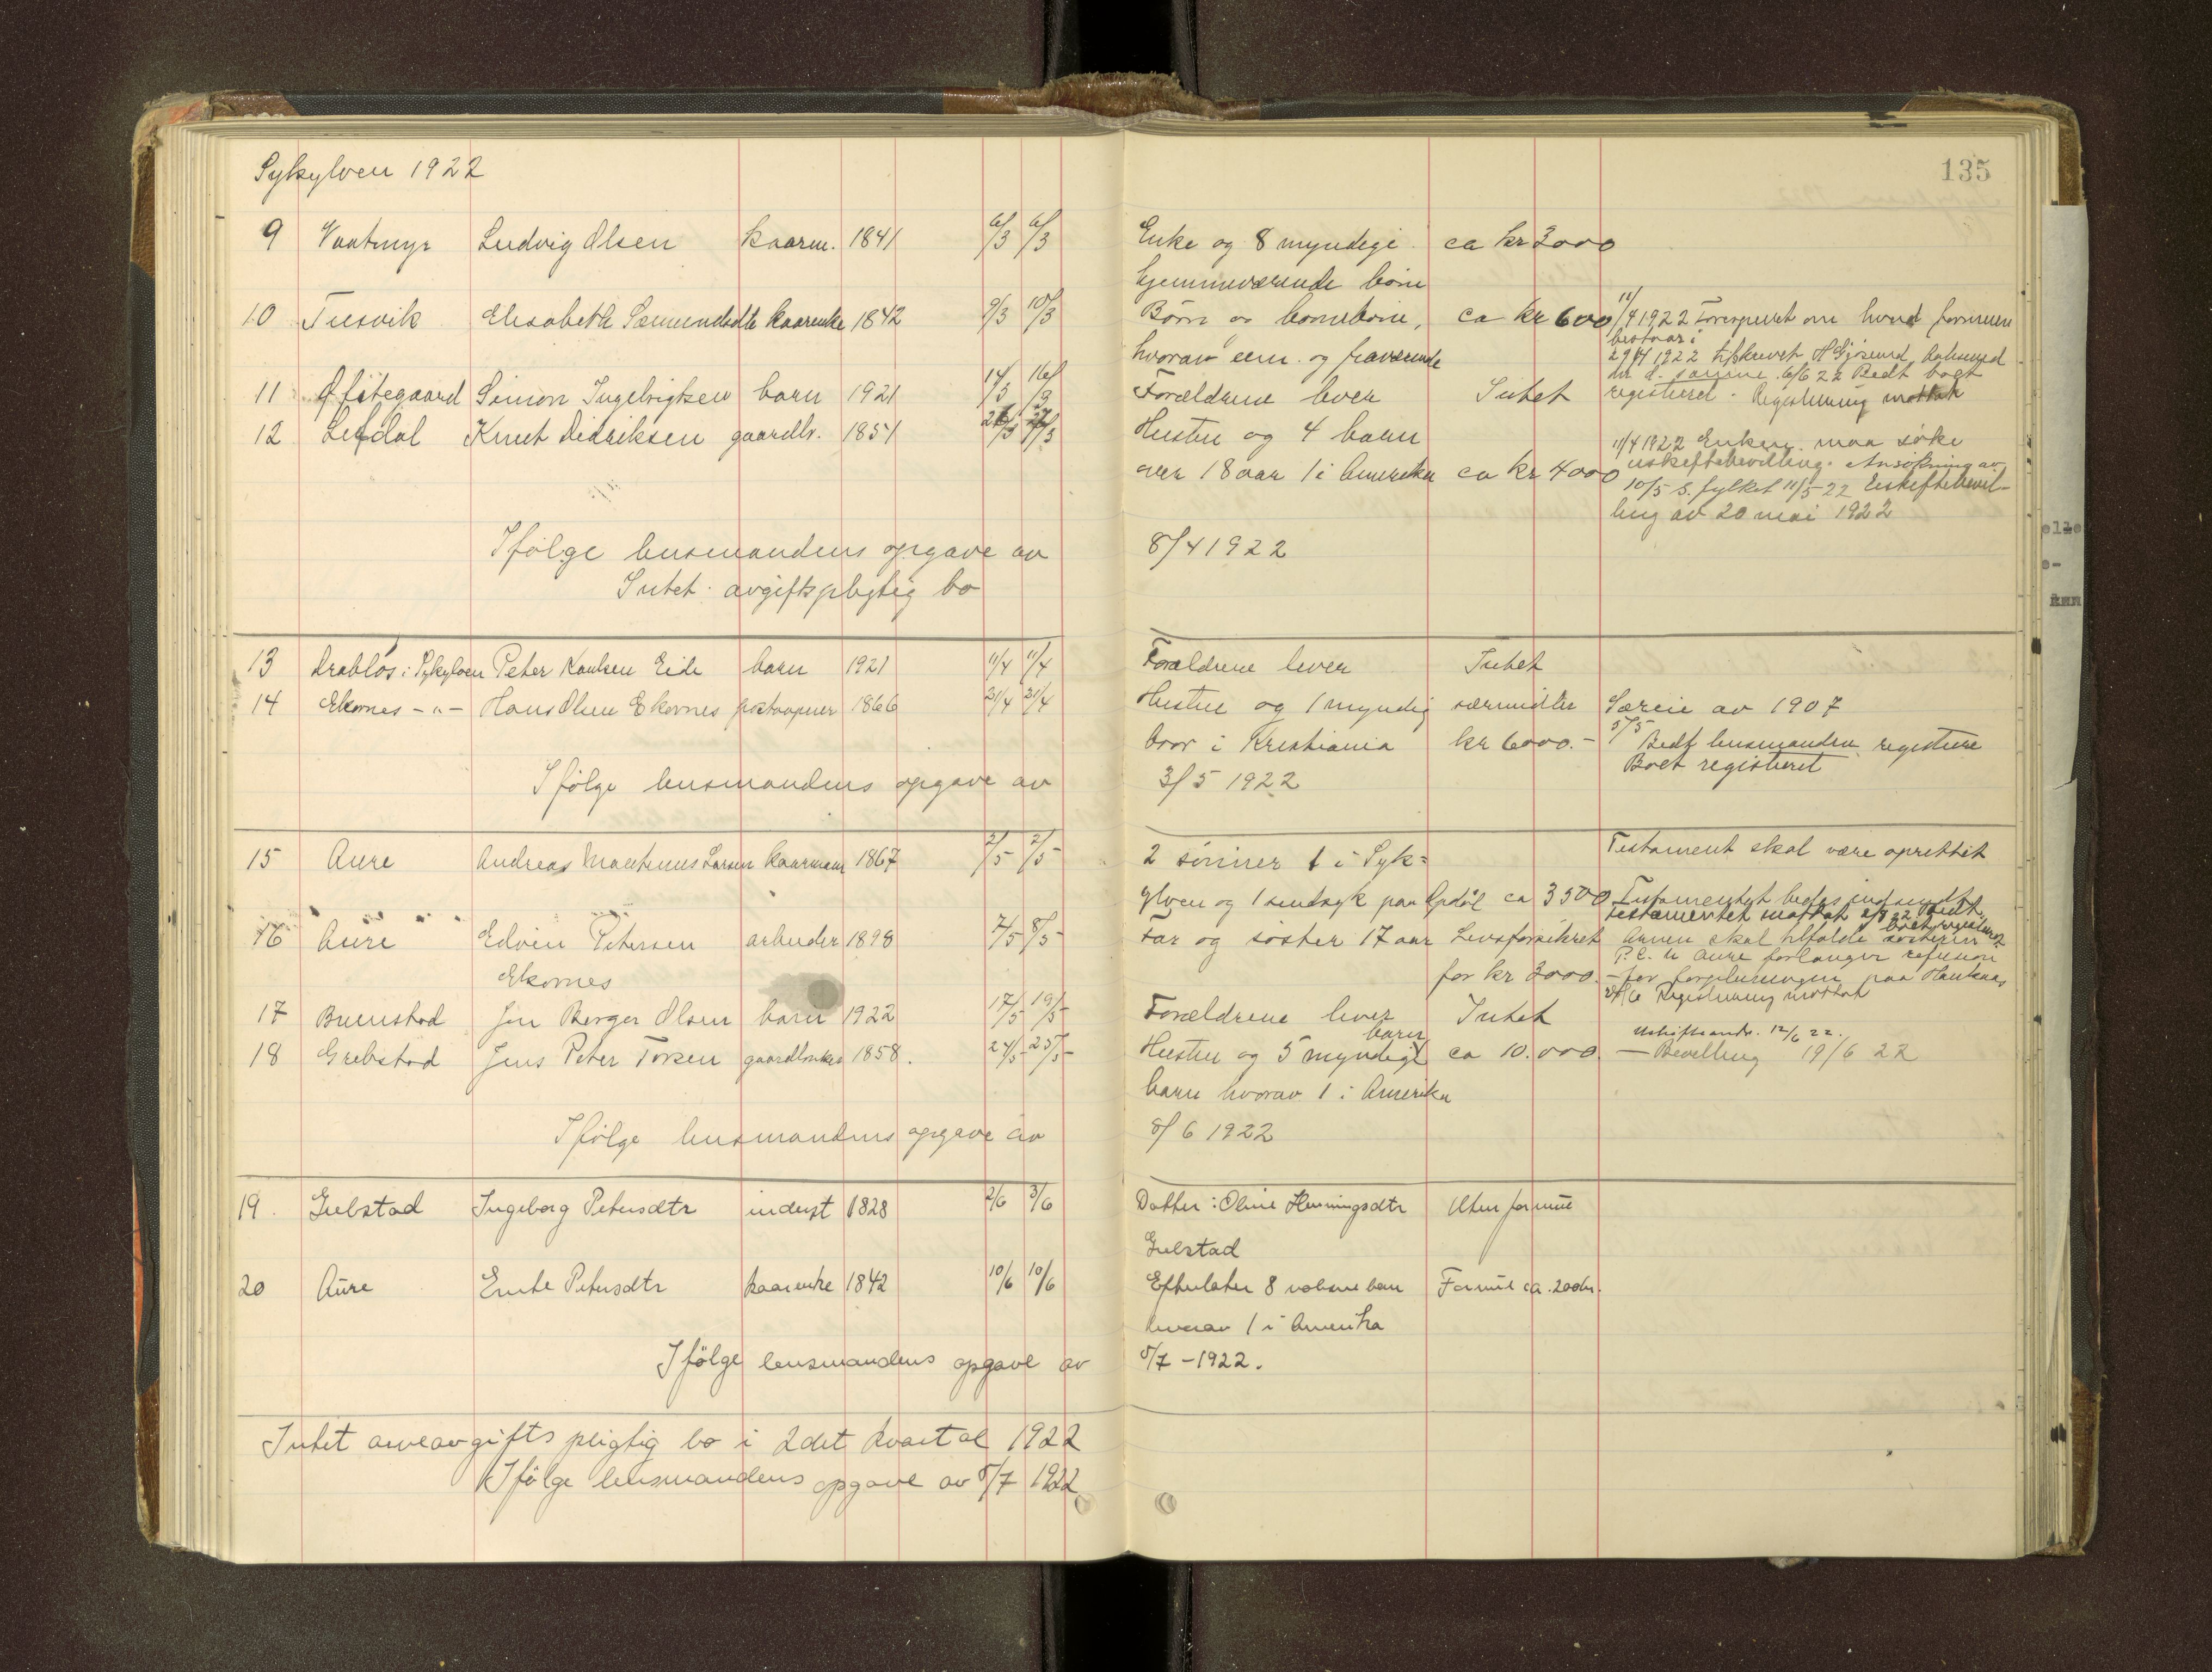 Sykylven 1922
135
9 Vaatmyr Ludvig Olsen kaarm. 1841 6/3 6/3 Enke og 8 myndige ca kr 3000
hjemmeværende børn
10 Tusvik Elisabeth Sæmundsdtr kaarenke 1842 9/3 10/3 Børn og barnebørn, ca kr 600 11/4 1922 Forespurt om hvad formuen
bestaar i
hvorav een og fraværende 29/4 1922 tilskrevet
6/6 22 Bedt boet
11 Øfstegaard Simon Ingebrigtsen barn 1921 14/3 16/3 Forældrene lever Intet registreret. Registrering mottat
12 Lefdal Knut Didriksen gaardbr. 1851 Hustru og 4 barn
11/4 1922 Enken maa søke
over 18 aar 1 i Amerika ca kr 4000 uskiftebevilling. Ansøkning av
10/5 s. fylket 11/5-22 Uskiftebevil-
ling av 20 mai 1922
Ifølge lensmandens opgave av 8/4 1922
Intet avgiftspligtig bo
13 Drabløs i Sykylven Peter Knutsen Eide barn 1921 11/4 11/4 Forældrene lever Intet
14 Ekornes -"- Hans Olsen Ekornes postaapner 1866 21/4 21/4 Hustru og 1 myndig særmidler Særeie av 1907
bror i Kristiania kr 6000.- 5/5 Bedt lensmanden registrere
Boet registreret
Ifølge lensmandens opgave av 3/5 1922
15 Aure Andreas Martinus Larsen kaarmann 1867 2/5 2/5 2 sønner 1 i Syk= Testament skal være oprettet
ylven og 1 sindsyk paa Opdøl ca 3500 Testamentet bedes indsendt
Testamentet mottat 2/8 22 Bedt
boet registrert
16 Aure Edvin Petersen arbeider 1898 7/5 8/5 Far og søster 17 aar Livsforsikret Arven skal tilfalde søsteren
P. E. Aure forlanger refusion
Ekornes for kr 3000.- for forpleiningen paa Haukaas
Registrering mottat
17 Brunstad Jon Berger Olsen barn 1922 17/5 19/5 Forældrene lever Intet
Uskifteandr. 12/6 22.
18 Grebstad Jens Peter Torsen gaardbruker 1858. 24/5 25/5 Hustru og 5 myndige barn ca 10.000. — Bevilling 19/6 22
barn hvorav 1 i Amerika
Ifølge lensmandens opgave av 8/6 1922
19. Gjelstad Ingeborg Petersdtr inderst 1828 2/6 3/6 Datter: Oline Henningsdtr Uten formue
Gjelstad
20 Aure Emte Petersdtr kaarenke 1842 10/6 10/6 Efterlater 8 voksne barn Formue ca. 200 kr.
hvorav 1 i Amerika
Ifølge lensmandens opgave av 5/7 -1922.
Intet arveavgifts pligtig bo i 2det kvartal 1922
Ifølge lensmandens opgave av 5/7 1922